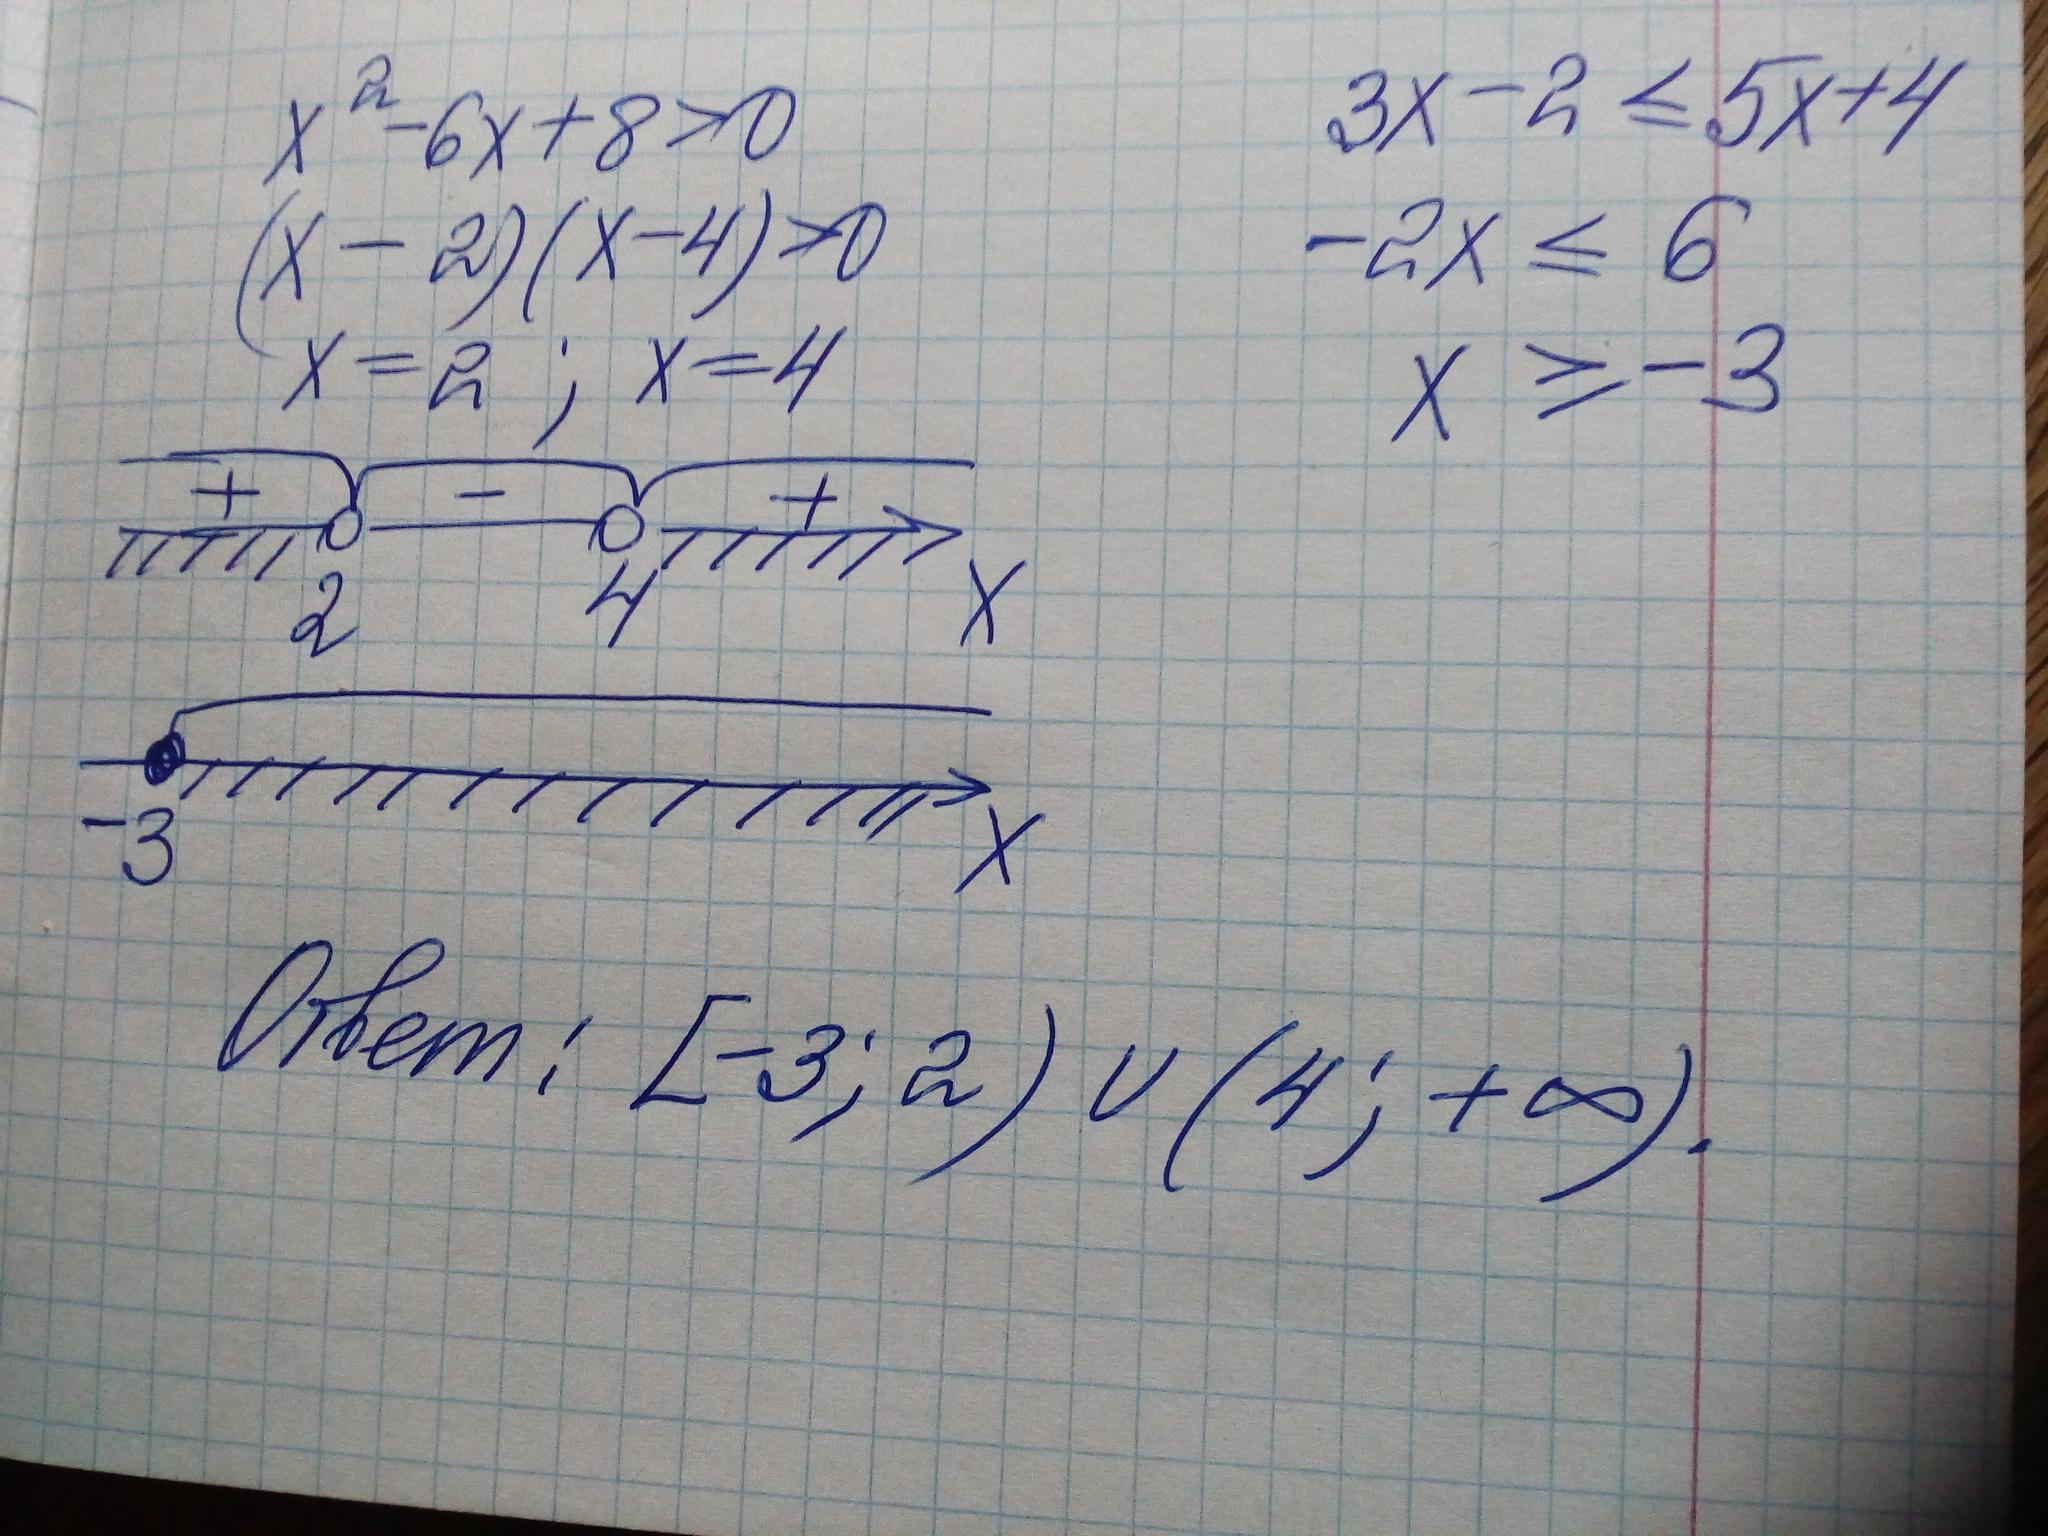 x²-6x+8>0
(x-2)(x-4)>0
x=2; x=4
+ - +
2 4 x
-3 x
3x-2≤5x+4
-2x≤6
x≥-3
Ответ: [-3; 2)∪(4; +∞).